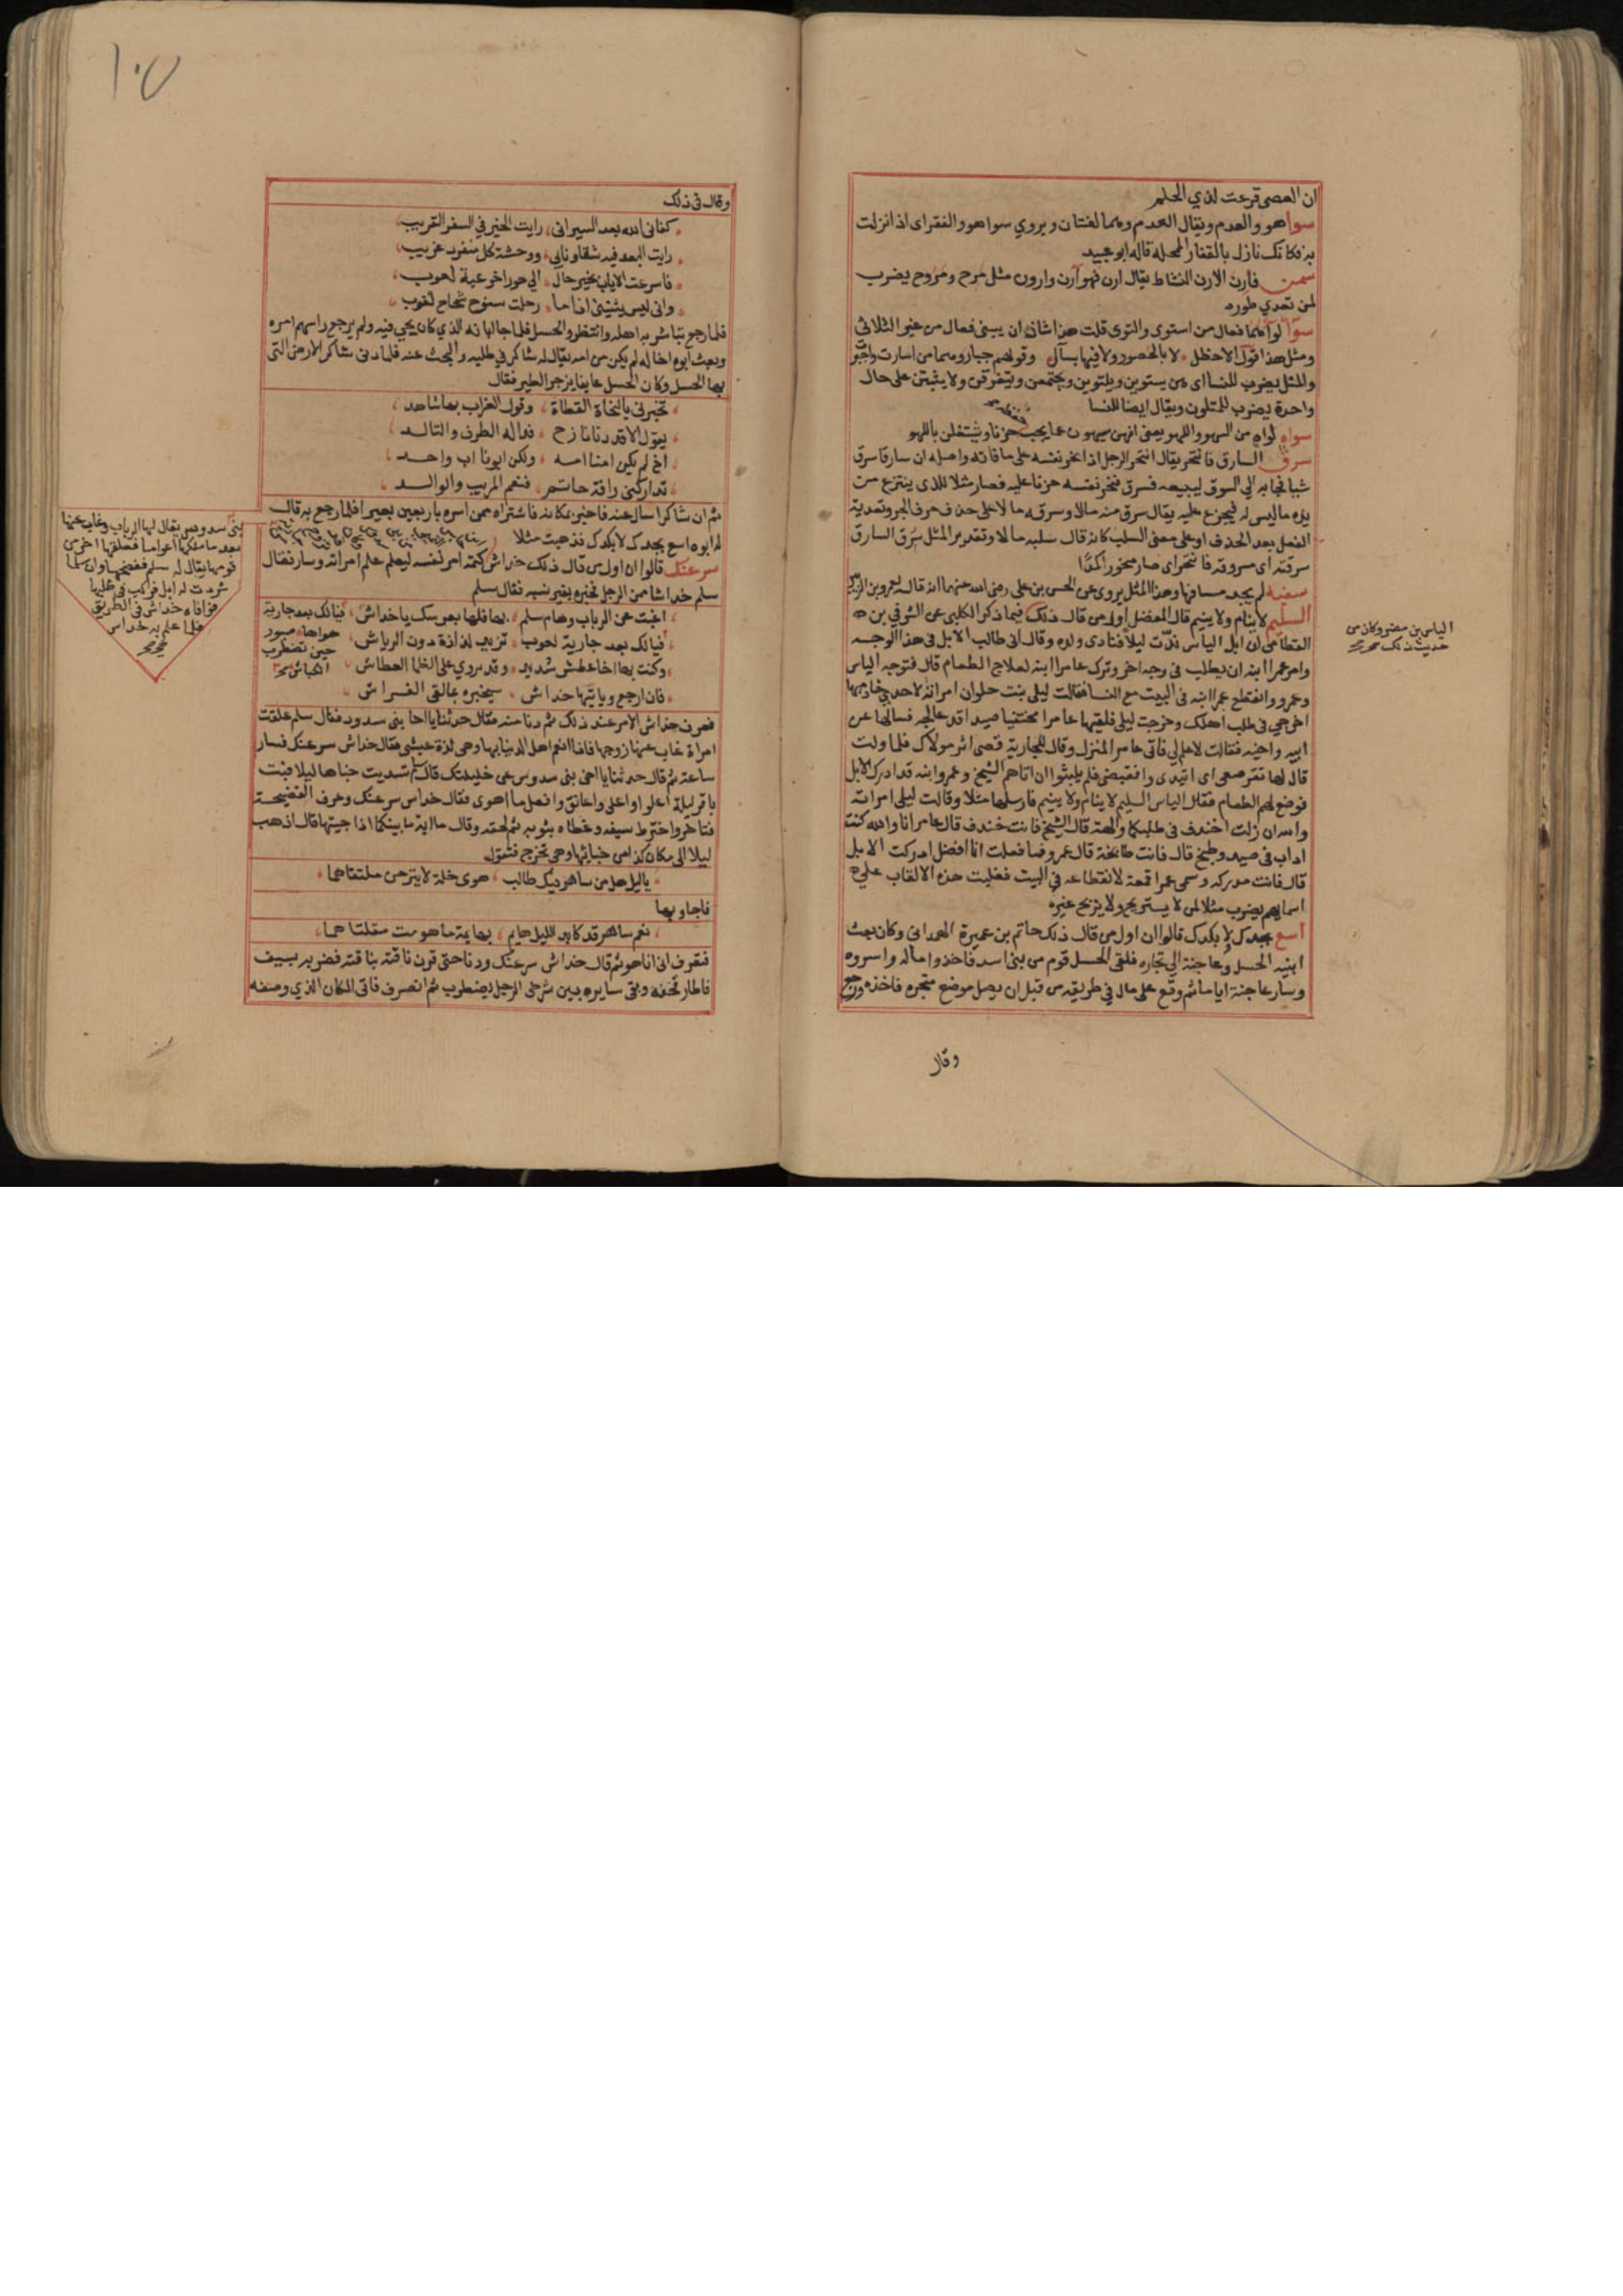 ان العصى قرعت لذي الحلم
سواهو والعدم ويقال العدم وهما لغتان ويروي سواهو والقفر اى اذا نزلت
به فكانك نازل بالقفار المحله قاله ابو عبيد
سمن فارن الارن النشاط يقال ارن فهو آرن وارون مثل مرح ومروح يضرب
لمن تعدي طوره
سوآ لوآ هما فعال من استوى والتوى قلت هذا شاذ ان يبنى فعال من غير الثلاثي
ومثل هذا قول الاخطل لا بالحصور ولا فيها بسآر وقولهم جبار وهما من اسارت واجبر
والمثل يضرب للنسا اى هن يستوين ويلتوين ويجتمعن ويتفرقن ولا يثبتن على حال
واحدة يضرب للمتلون ويقال ايضا للنسا
سواه لواه من السهو واللهو يعنى انهن يسهون عما يجب حزنا ويشتغلن باللهو
سرق السارق فانتحر يقال انتحر الرجل اذا نحر نفسه على ما فاته واصله ان سارقا سرق
شيا فجا به الى السوق ليبيعه فسرق فنحر نفسه حزنا عليه فصار مثلا للذى ينتزع من
يده ما ليس له فيجزع عليه يقال سرق منه مالا وسرقه مالا على حذف حرف الجر وتعدية
الفعل بعد الحذف او على معنى السلب كانه قال سلبه مالا وتقدير المثل سرق السارق
سرقته اى مسروقه فانتحر اى صار منحورا كمدا
سفيه لم يجد مسافها وهذا المثل يروى عن الحسن بن على رضى الله عنهما انه قاله لعمرو بن الزبير
السليم لا ينام ولا ينيم قال المفضل اول من قال ذلك فيما ذكر الكلبى عن الشرقى بن
القطامى ان ابل الياس ندت ليلا فنادى ولده وقال انى طالب الابل فى هذا الوجه
وامر عمرا ابنه ان يطلب فى وجه اخر وترك عامرا ابنه لعلاج الطعام قال فتوجه الياس
وعمرو وانقطع عمير ابنه فى البيت مع النسا فقالت ليلى بنت حلوان امراته لاحدى خادميها
اخرجى فى طلب اهلك وخرجت ليلى فلقيها عامرا محتقبا صيدا قد عالجه فسالها عن
ابيه واخيه فقالت لا علم لى فاتى عامر المنزل وقال للجارية قصى اثر مولاك فلما ولت
قال لها تقرصعى اى اتيدى وانقبضى فلم يلبثوا ان اتاهم الشيخ وعمرو ابنه قد ادرك الابل
فوضع لهم الطعام فقال الياس السليم لا ينام ولا ينيم فارسلها مثلا وقالت ليلى امراته
والله ان زلت اخندف فى طلبكما والهة قال الشيخ فانت خندف قال عامر انا والله كنت
اداب فى صيد وطبخ قال فانت طابخة قال عمرو فما فعلت انا افضل ادركت الابل
قال فانت مدركه وسمى عميرا قمعة لانقطاعه فى البيت فغلبت هذه الالقاب على
اسمايهم يضرب مثلا لمن لا يستريح ولا يريح غيره
اسع بجدك لا بكدك قالوا ان اول من قال ذلك حاتم بن عميرة الهمدانى وكان بعث
ابنيه الحسل وعاجنة الى تجاره فلقى الحسل قوم من بنى اسد فاخذوا ماله واسروه
وسار عاجنة اياما ثم وقع على مال فى طريقه من قبل ان يصل موضع متجره فاخذه ورجع
وقال
الياس بن مضر وكان من
حديث ذلك صح
١٠٧
وقال فى ذلك
كفانى الله بعد السير انى رايت الخير فى السفر القريب
رايت البعد فيه شقا ونايى ووحشة كل منفرد غريب
فاسرعت الاياب بخير حال الى حورا خرعبة لعوب
وانى ليس يثنينى اذا ما رحلت سنوح شحاج لغوب
فلما رجع تباشر به اهله وانتظروا الحسل فلما جا ابانه الذي كان يجى فيه ولم يرجع رابهم امره
وبعث ابوه اخا له لم يكن من امه يقال له شاكر فى طلبه والبحث عنه فلما دنى شاكر الارض التى
بها الحسل وكان الحسل عايفا يزجر الطير فقال
تخبرنى بالنجاة القطاة وقول الغراب بها شاهد
يقول الا قد دنا نازح فداله الطرف والتالد
اخ لم يكن امنا امه ولكن ابونا اب واحد
تداركنى رافة حاتم فنعم المربب والوالد
ثم ان شاكرا سال عنه فاخبر بمكانه فاشتراه ممن اسره باربعين بعيرا فلما رجع به قال
له ابوه اسع بجدك لا بكدك فذهبت مثلا
سرعنك قالوا ان اول من قال ذلك خداش كتمه امر نفسه ليعلم علم امراته وسار فقال
سلم خداشا ممن الرجل فخبره بغير نسبه فقال سلم
اغبت عن الرباب وهام سلم بها فلها بعرسك يا خداش
فيالك بعد جارية لعوب تزيد لذاذة دون الرياش
وكنت بها اخا عطش شديد وقد يروي على الظما العطاش
فان ارجع وياتيها خداش سيخبره بما لاقى الفراش
فيالك بعد جارية
هواها صبور
حين تضطرب
الكباش صح
فعرف خداش الامر عند ذلك ثم دنا منه فقال حدثنا يا اخا بنى سدوس فقال سلم علقت
امراة غاب عنها زوجها فانا انعم اهل الدنيا بها وهى لذة عيشى فقال خداش سر عنك فسار
ساعة ثم قال حدثنا يا اخى بنى سدوس عن خليلتك قال تسديت خباها ليلا فبت
باقر ليلة اعلوا واعلى واعانق وافعل ما اهوى فقال خداش سر عنك وعرف الفضيحة
فتاخر واخترط سيفه وغطاه بثوبه ثم لحقه وقال ما اية ما بينكما اذا جيتها قال اذهب
ليلا الى مكان كذا من خبائها وهى تخرج فتقول
ياليل هل من ساهر فيك طالب هوى خلة لا ينزحن ملتقاهما
فاجاوبها
نعم ساهر قد كابد الليل هايم بهايمة ما هومت مقلتاهما
فتعرف انى انا هو ثم قال خداش سر عنك ودنا حتى قرن ناقته بناقته فضربه بسيف
فاطار قحفه وبقى سايره بين شرخى الرحل يضطرب ثم انصرف فاتى المكان الذي وصفه
بنى سدوس يقال لها الرباب وغاب عنها
بعد ما ملكها اعواما فعلقها اخر من
قومها يقال له سلم ففضحها وان سلما
شردت له ابل فركب فى طلبها
فوافاه خداش فى الطريق
فلما علم به خداش
صح